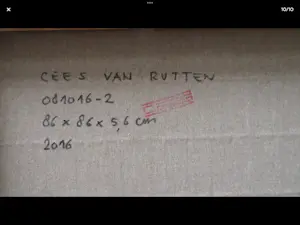 10/10
CEES VAN RUTTEN
081016-2
86 x 86 x 5,6 cm
2016